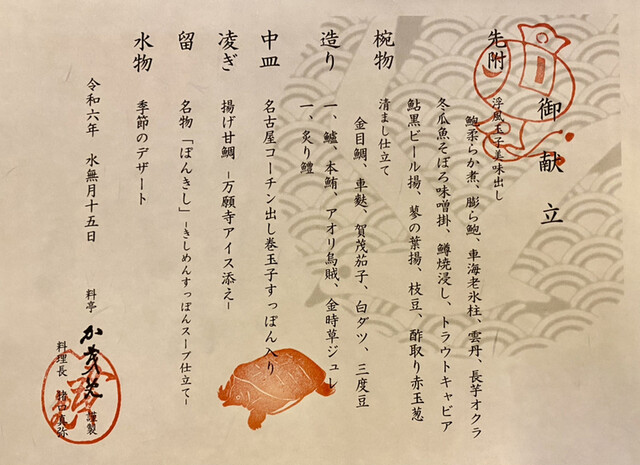 御献立
先附
浮風玉子美味出し
鮑柔らか煮、膨ら鮑、車海老氷柱、雲丹、長芋オクラ
冬瓜魚そぼろ味噌掛、鱒焼浸し、トラウトキャビア
鮎黒ビール揚、蓼の葉揚、枝豆、酢取り赤玉葱
椀物
清まし仕立て
金目鯛、車麩、賀茂茄子、白ダツ、三度豆
造り
一、鱸、本鮪、アオリ烏賊、金時草ジュレ
一、炙り鱧
中皿
名古屋コーチン出し巻玉子すっぽん入り
凌ぎ
揚げ甘鯛 -万願寺アイス添え-
留
名物「ぽんきし」-きしめんすっぽんスープ仕立て-
水物
季節のデザート
令和六年 水無月十五日
料亭 か茂免 謹製
料理長 真弥